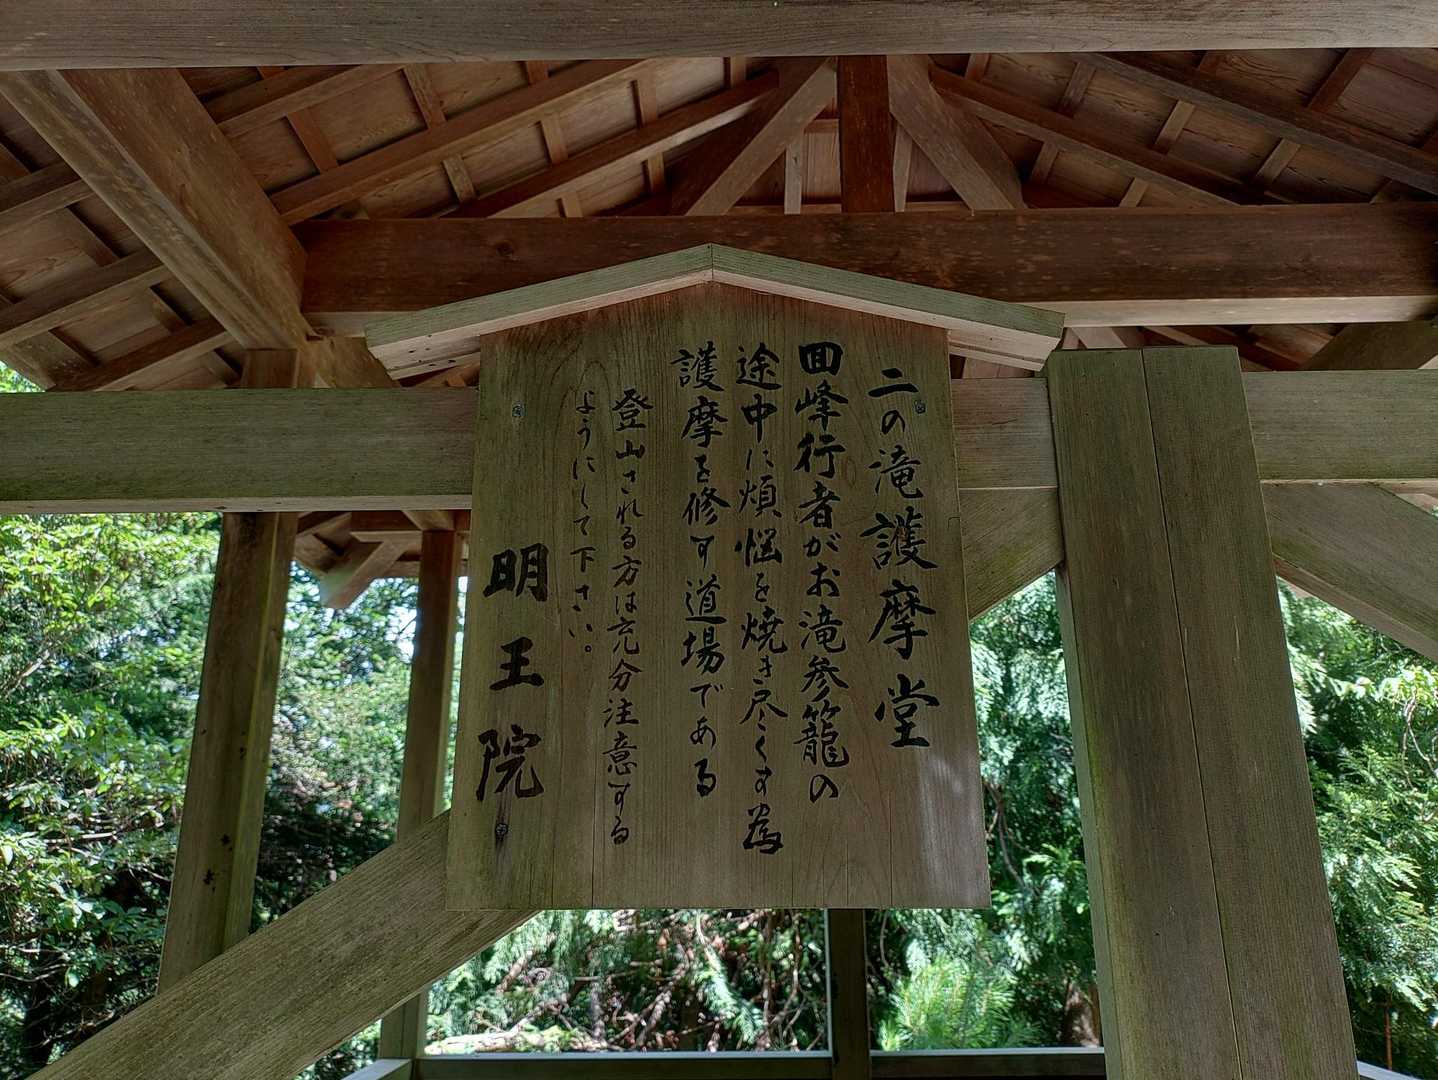 二の滝護摩堂
回峰行者がお滝参籠の
途中に煩悩を焼き尽くす為
護摩を修す道場である
登山される方は充分注意する
ようにして下さい。
明王院